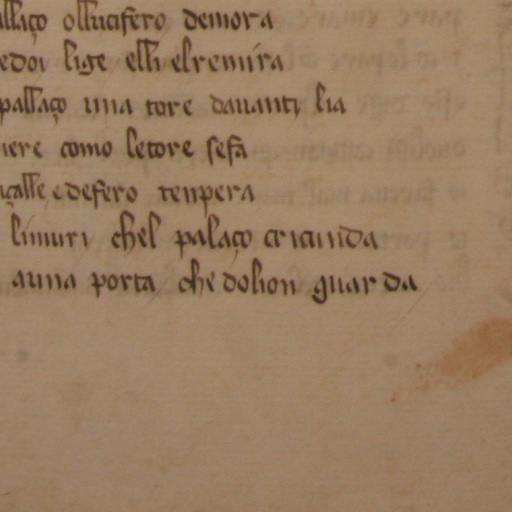 allaço ollucifero demora
edou lige elli elremira
pallaço una tore dauanti lia
iere como letore sefa
çalle e defero tenpera
limuri chel palaço circunda
auna porta che dolion guarda